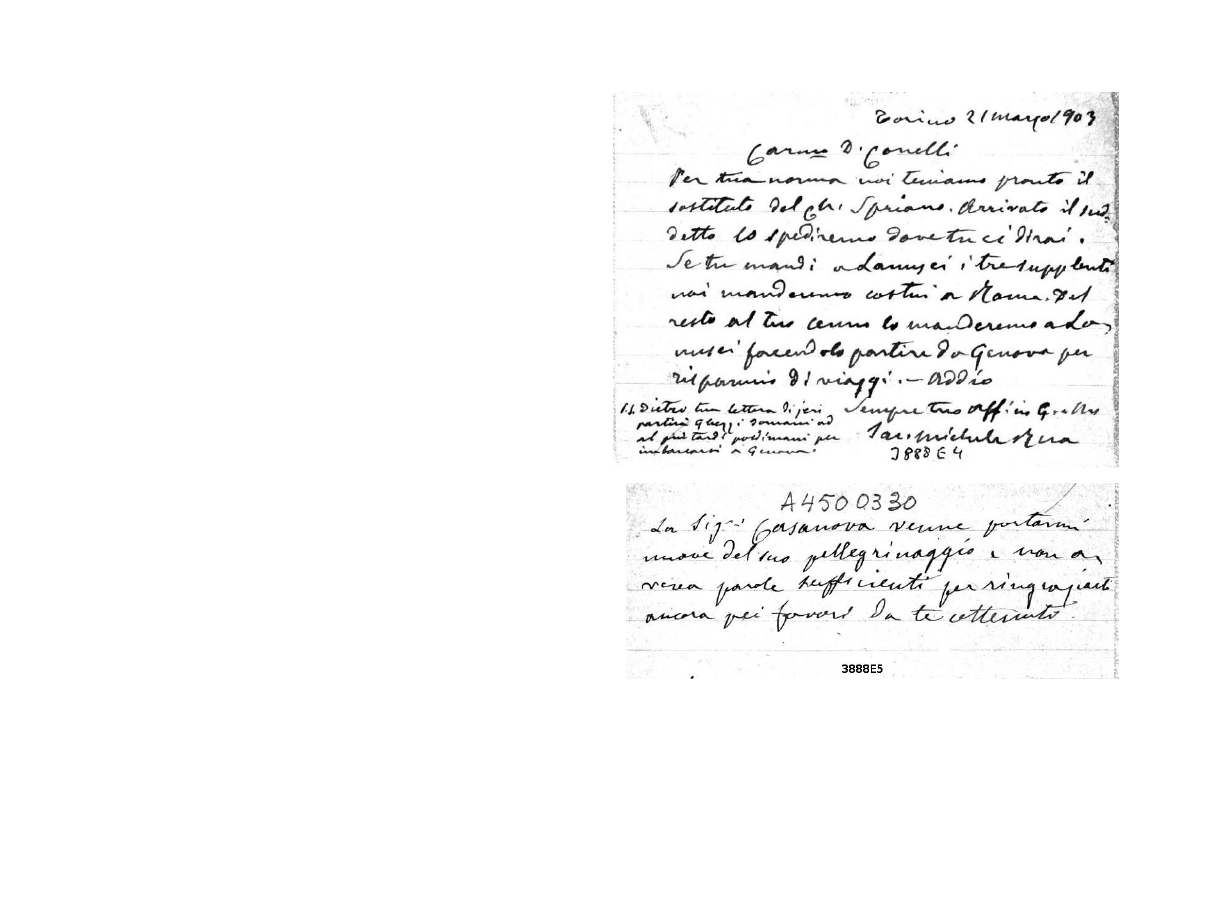 Torino 21 marzo 1903
Car.mo D. Conelli
Per tua norma noi teniamo pronto il
sostituto del Ch. Spriano. Arrivato il sud.
detto lo spediremo dove tu ci dirai.
Se tu mandi a Lanusei i tre supplenti
noi manderemo costui a Roma. Del
resto al tuo cenno lo manderemo a La,
nusei facendolo partire da Genova per
risparmio di viaggi. — Addio
Sempre tuo aff. in G.
Sac. Michele Rua
Dietro tua lettera di jeri
partirà Ghezzi domani od
al più tardi posdimani per
imbarcarsi a Genova.
3888E4
A4500330
La Sig.ra Casanova venne portarmi
nuove del suo pellegrinaggio e non a,
veva parole sufficienti per ringraziarti
ancora pei favori da te ottenuti.
3888E5